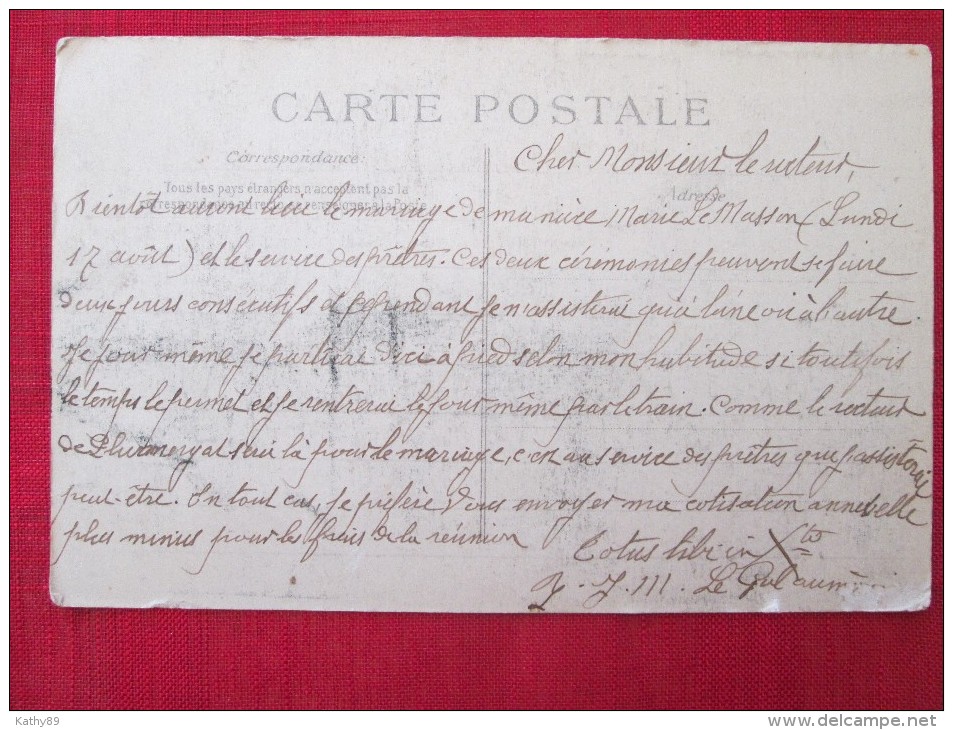 CARTE POSTALE
Correspondance:
Cher Monsieur le recteur,
Tous les pays étrangers n'acceptent pas la
Adresse
Bientôt auront lieu le mariage de ma nièce, Marie Le Masson (Lundi
17 août) et le service des prêtres. Ces deux cérémonies peuvent se faire
deux jours consécutifs et cependant je n'assisterai qu'à l'une ou à l'autre.
Le jour même je partirai d'ici à pied selon mon habitude si toutefois
le temps le permet et je rentrerai le jour même par le train. Comme le recteur
de sera là pour le mariage, c'est au service des prêtres que j'assisterai
peut-être. En tout cas, je préfère vous envoyer ma cotisation annuelle
plus minus pour les frais de la réunion
Totus tibi in Xto
J. M. Le
Kathy89
www.delcampe.net